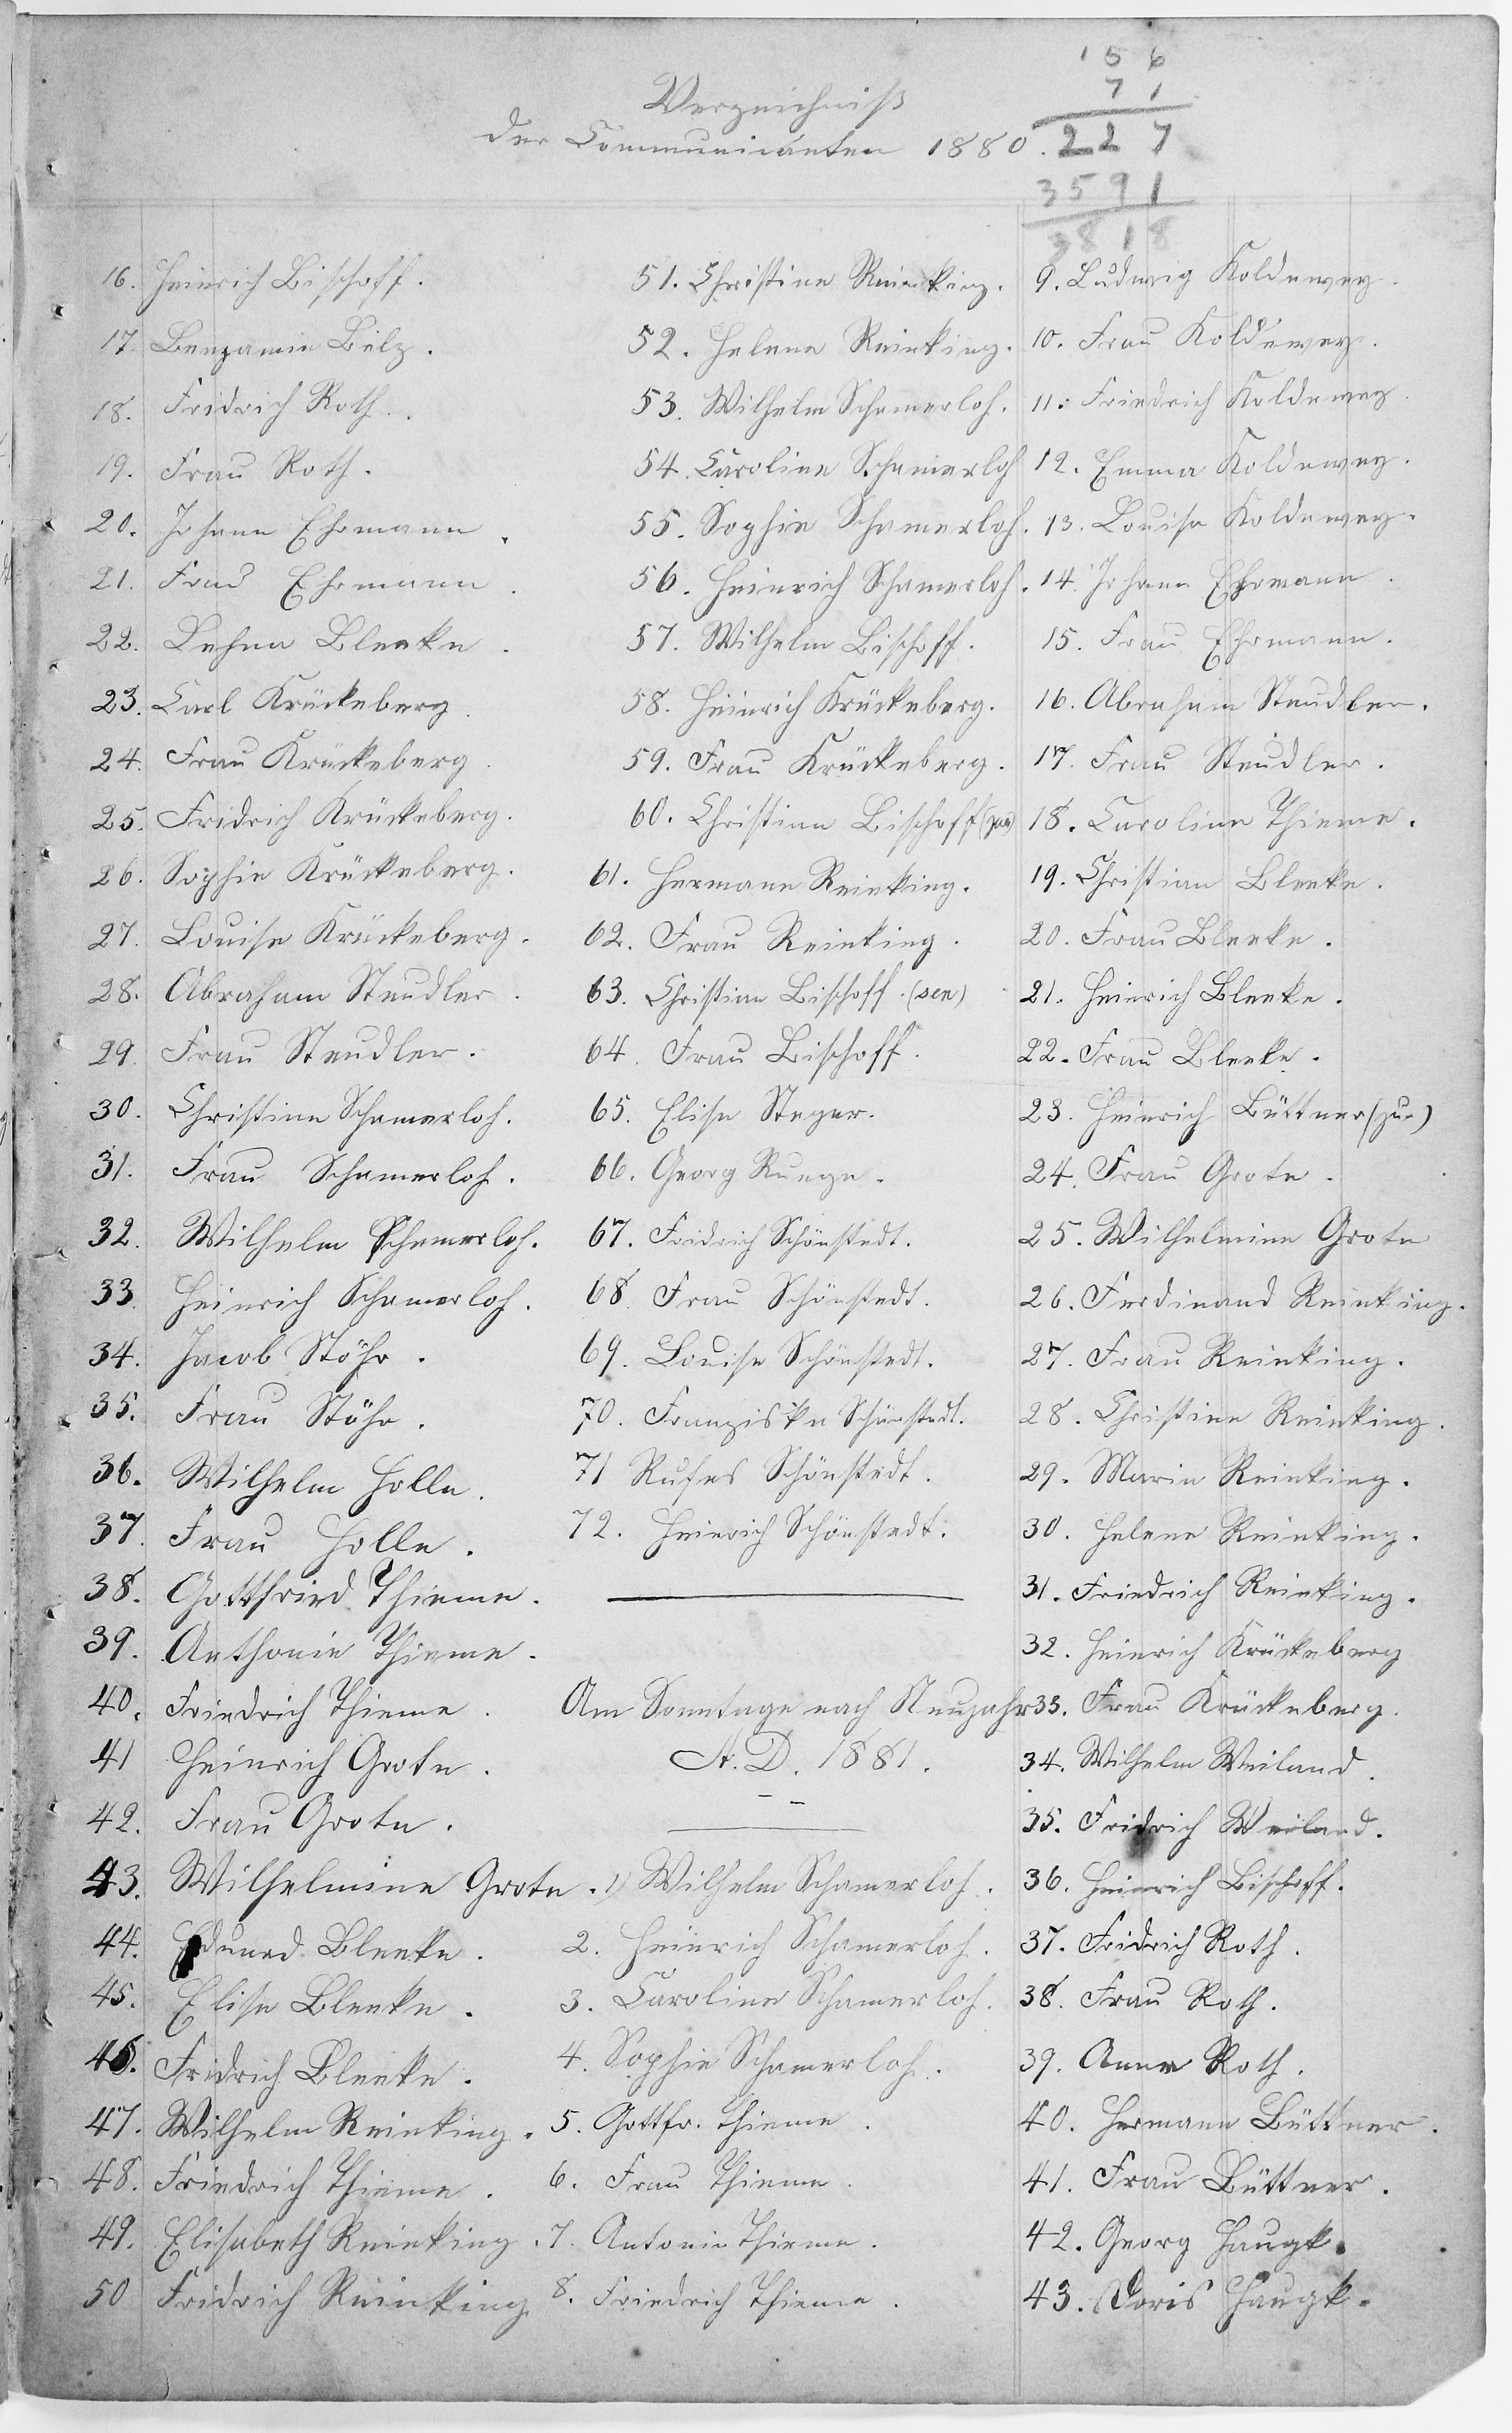 Verzeichniß
der Communicanten 1880.
156
71
227
3591
3818
16. Heinrich Bischoff.
17. Benzamin Bilz.
18. Fridrich Roth.
19. Frau Roth.
20. Johann Ehrmann.
21. Frau Ehrmann.
22. Lehna Bleeke.
23. Carl Krückeberg.
24. Frau Krückeberg.
25. Fridrich Krückeberg.
26. Sophie Krückeberg.
27. Louise Krückeberg.
28. Abraham Steudler.
29. Frau Steudler.
30. Christine Schamerloh.
31. Frau Schamerloh.
32. Wilhelm Schamerloh.
33. Heinrich Schamerloh.
34. Jacob Stöhr.
35. Frau Stöhr.
36. Wilhelm Holle.
37. Frau Holle.
38. Gottfried Thieme.
39. Anthonie Thieme.
40. Friedrich Thieme.
41 Heinrich Grote.
42. Frau Grote.
43. Wilhelmine Grote.
44. Eduard Bleeke.
45. Elise Bleeke.
46. Fridrich Bleeke.
47. Wilhelm Reinking.
48. Friedrich Thieme.
49. Elisabeth Reinking.
50 Fridrich Reinking
51. Christine Reinking.
52. Helene Reinking.
53. Wilhelm Schamerloh.
54. Caroline Schamerloh
55. Sophie Schamerloh.
56. Heinrich Schamerloh.
57. Wilhelm Bischoff.
58. Heinrich Krückeberg.
59. Frau Krückeberg.
60. Christian Bischoff (jun)
61. Hermann Reinking.
62. Frau Reinking.
63. Christian Bischoff. (sen)
64. Frau Bischoff.
65. Elise Steger.
66. Georg Ruege.
67. Fridrich Schönstedt.
68 Frau Schönstedt.
69. Louise Schönstedt.
70. Franziska Schönstedt.
71 Rufus Schönstedt.
72. Heinrich Schönstedt.
Am Sonntage nach Neujahr
A. D. 1881.
1) Wilhelm Schamerloh.
2. Heinrich Schamerloh.
3. Caroline Schamerloh.
4. Sophie Schamerloh.
5. Gottfr. Thieme.
6. Frau Thieme.
7. Antonie Thieme.
8. Friedrich Thieme.
9. Ludwig Koldewey.
10. Frau Koldewey.
11. Friedrich Koldewey.
12. Emma Koldewey.
13. Louise Koldewey.
14. Johann Ehrmann.
15. Frau Ehrmann.
16. Abraham Steudler.
17. Frau Steudler.
18. Caroline Thieme.
19. Christian Bleeke.
20. Frau Bleeke.
21. Heinrich Bleeke.
22. Frau Bleeke.
23. Heinrich Büttner (jun)
24. Frau Grote.
25. Wilhelmine Grote
26. Ferdinand Reinking.
27. Frau Reinking.
28. Christine Reinking.
29. Marie Reinking.
30. Helene Reinking.
31. Friedrich Reinking.
32. Heinrich Krückeberg
33. Frau Krückeberg.
34. Wilhelm Weiland.
35. Fridrich Weiland.
36. Heinrich Bischoff.
37. Fridrich Roth.
38. Frau Roth.
39. Anna Roth.
40. Hermann Büttner.
41. Frau Büttner.
42. Georg Haugk.
43. Doris Haugk.